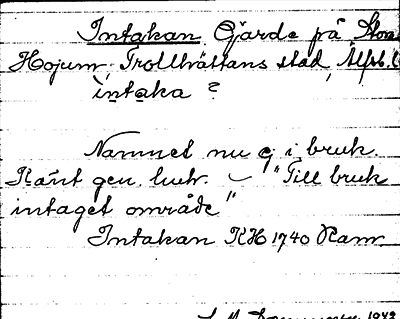 Intakan Gärde på Stora
Hojum, Trollhättans stad, Älfsb. l
intaka ?
Namnet nu ej i bruk.
Känt gen. lantm. – "Till bruk
intaget område"
Intakan KH 1740 Ramn
1943